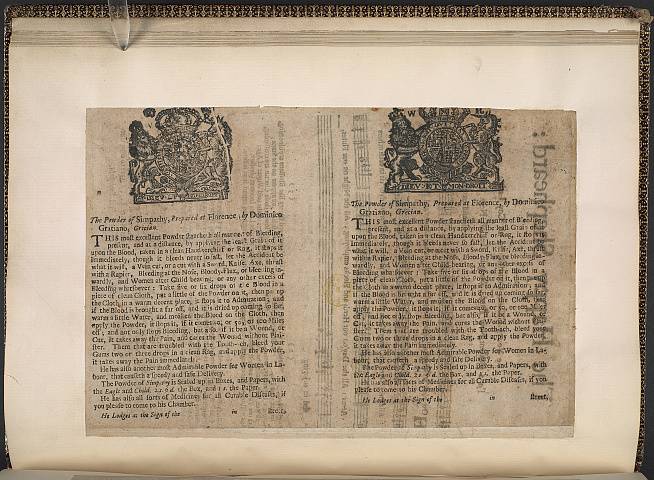 DIEV ET MON DROIT
The Powder of Simpathy, Prepared at Florence, by Dominico
Gratiano, Grecian.
THIS most excellent Powder stancheth all manner of Bleeding,
present, and at a distance, by applying the least Grain of it
upon the Blood, taken in a clean Handkerchief or Rag, it stops it
immediately, though it bleeds never so fast, let the Accident be
what it will, a Vein cut, or a cut with a Sword, Knife, Axe, thrust
with a Rapier, Bleeding at the Nose, Bloody-Flux, or bleeding in-
wardly, and Women after Child bearing, or any other excess of
Bleeding whatsoever: Take five or six drops of the Blood in a
piece of clean Cloth, put a little of the Powder on it, then put up
the Cloth in a warm decent place, it stops it to Admiration; and
if the Blood is brought a far off, and it is dried up coming so far,
warm a little Water, and moisten the Blood on the Cloth, then
apply the Powder, it stops it, if it comes 10, or 50, or 100 Miles
off, and not only stops Bleeding, but also if it be a Wound, or
Cut, it takes away the Pain, and cures the Wound without Plai-
ster. Them that are troubled with the Tooth-ach, bleed your
Gums two or three drops in a clean Rag, and apply the Powder,
it takes away the Pain immediately.
He has also another most Admirable Powder for Women in La-
bour, that causeth a speedy and safe Delivery.
The Powder of Simpathy is Sealed up in Boxes, and Papers, with
the Eagle and Child. 2 s. 6 d. the Box, and 1 s. the Paper.
He has also all sorts of Medicines for all Curable Diseases, if
you please to come to his Chamber.
He Lodges at the Sign of the in Street,
W R
DIEV ET MON DROIT
The Powder of Simpathy, Prepared at Florence, by Dominico
Gratiano, Grecian.
THIS most excellent Powder stancheth all manner of Bleeding,
present, and at a distance, by applying the least Grain of
upon the Blood, taken in a clean Handkerchief or Rag, it stops it
immediately, though it bleeds never so fast, let the Accident
what it will, a Vein cut, or a cut with a Sword, Knife, Axe, thrust
with a Rapier, Bleeding at the Nose, Bloody-Flux, or bleeding in-
wardly, and Women after Child bearing, or any other excess of
Bleeding whatsoever: Take five or six drops of the Blood in a
piece of clean Cloth, put a little of the Powder on it, then put
the Cloth in a warm decent place, it stops it to Admiration;
if the Blood is brought a far off, and it is dried up coming so far,
warm a little Water, and moisten the Blood on the Cloth,
apply the Powder, it stops it, if it comes 10, or 50, or 100 Miles
off, and not only stops Bleeding, but also if it be a Wound, or
Cut, it takes away the Pain, and cures the Wound without
ster. Them that are troubled with the Tooth-ach, bleed your
Gums two or three drops in a clean Rag, and apply the Powder,
it takes away the Pain immediately.
He has also another most Admirable Powder for Women in La-
bour, that causeth a speedy and safe Delivery.
The Powder of Simpathy is Sealed up in Boxes, and Papers, with
the Eagle and Child. 2 s. 6 d. the Box, and 1 s. the Paper.
He has also all sorts of Medicines for all Curable Diseases, if you
please to come to his Chamber.
He Lodges at the Sign of the in Street,